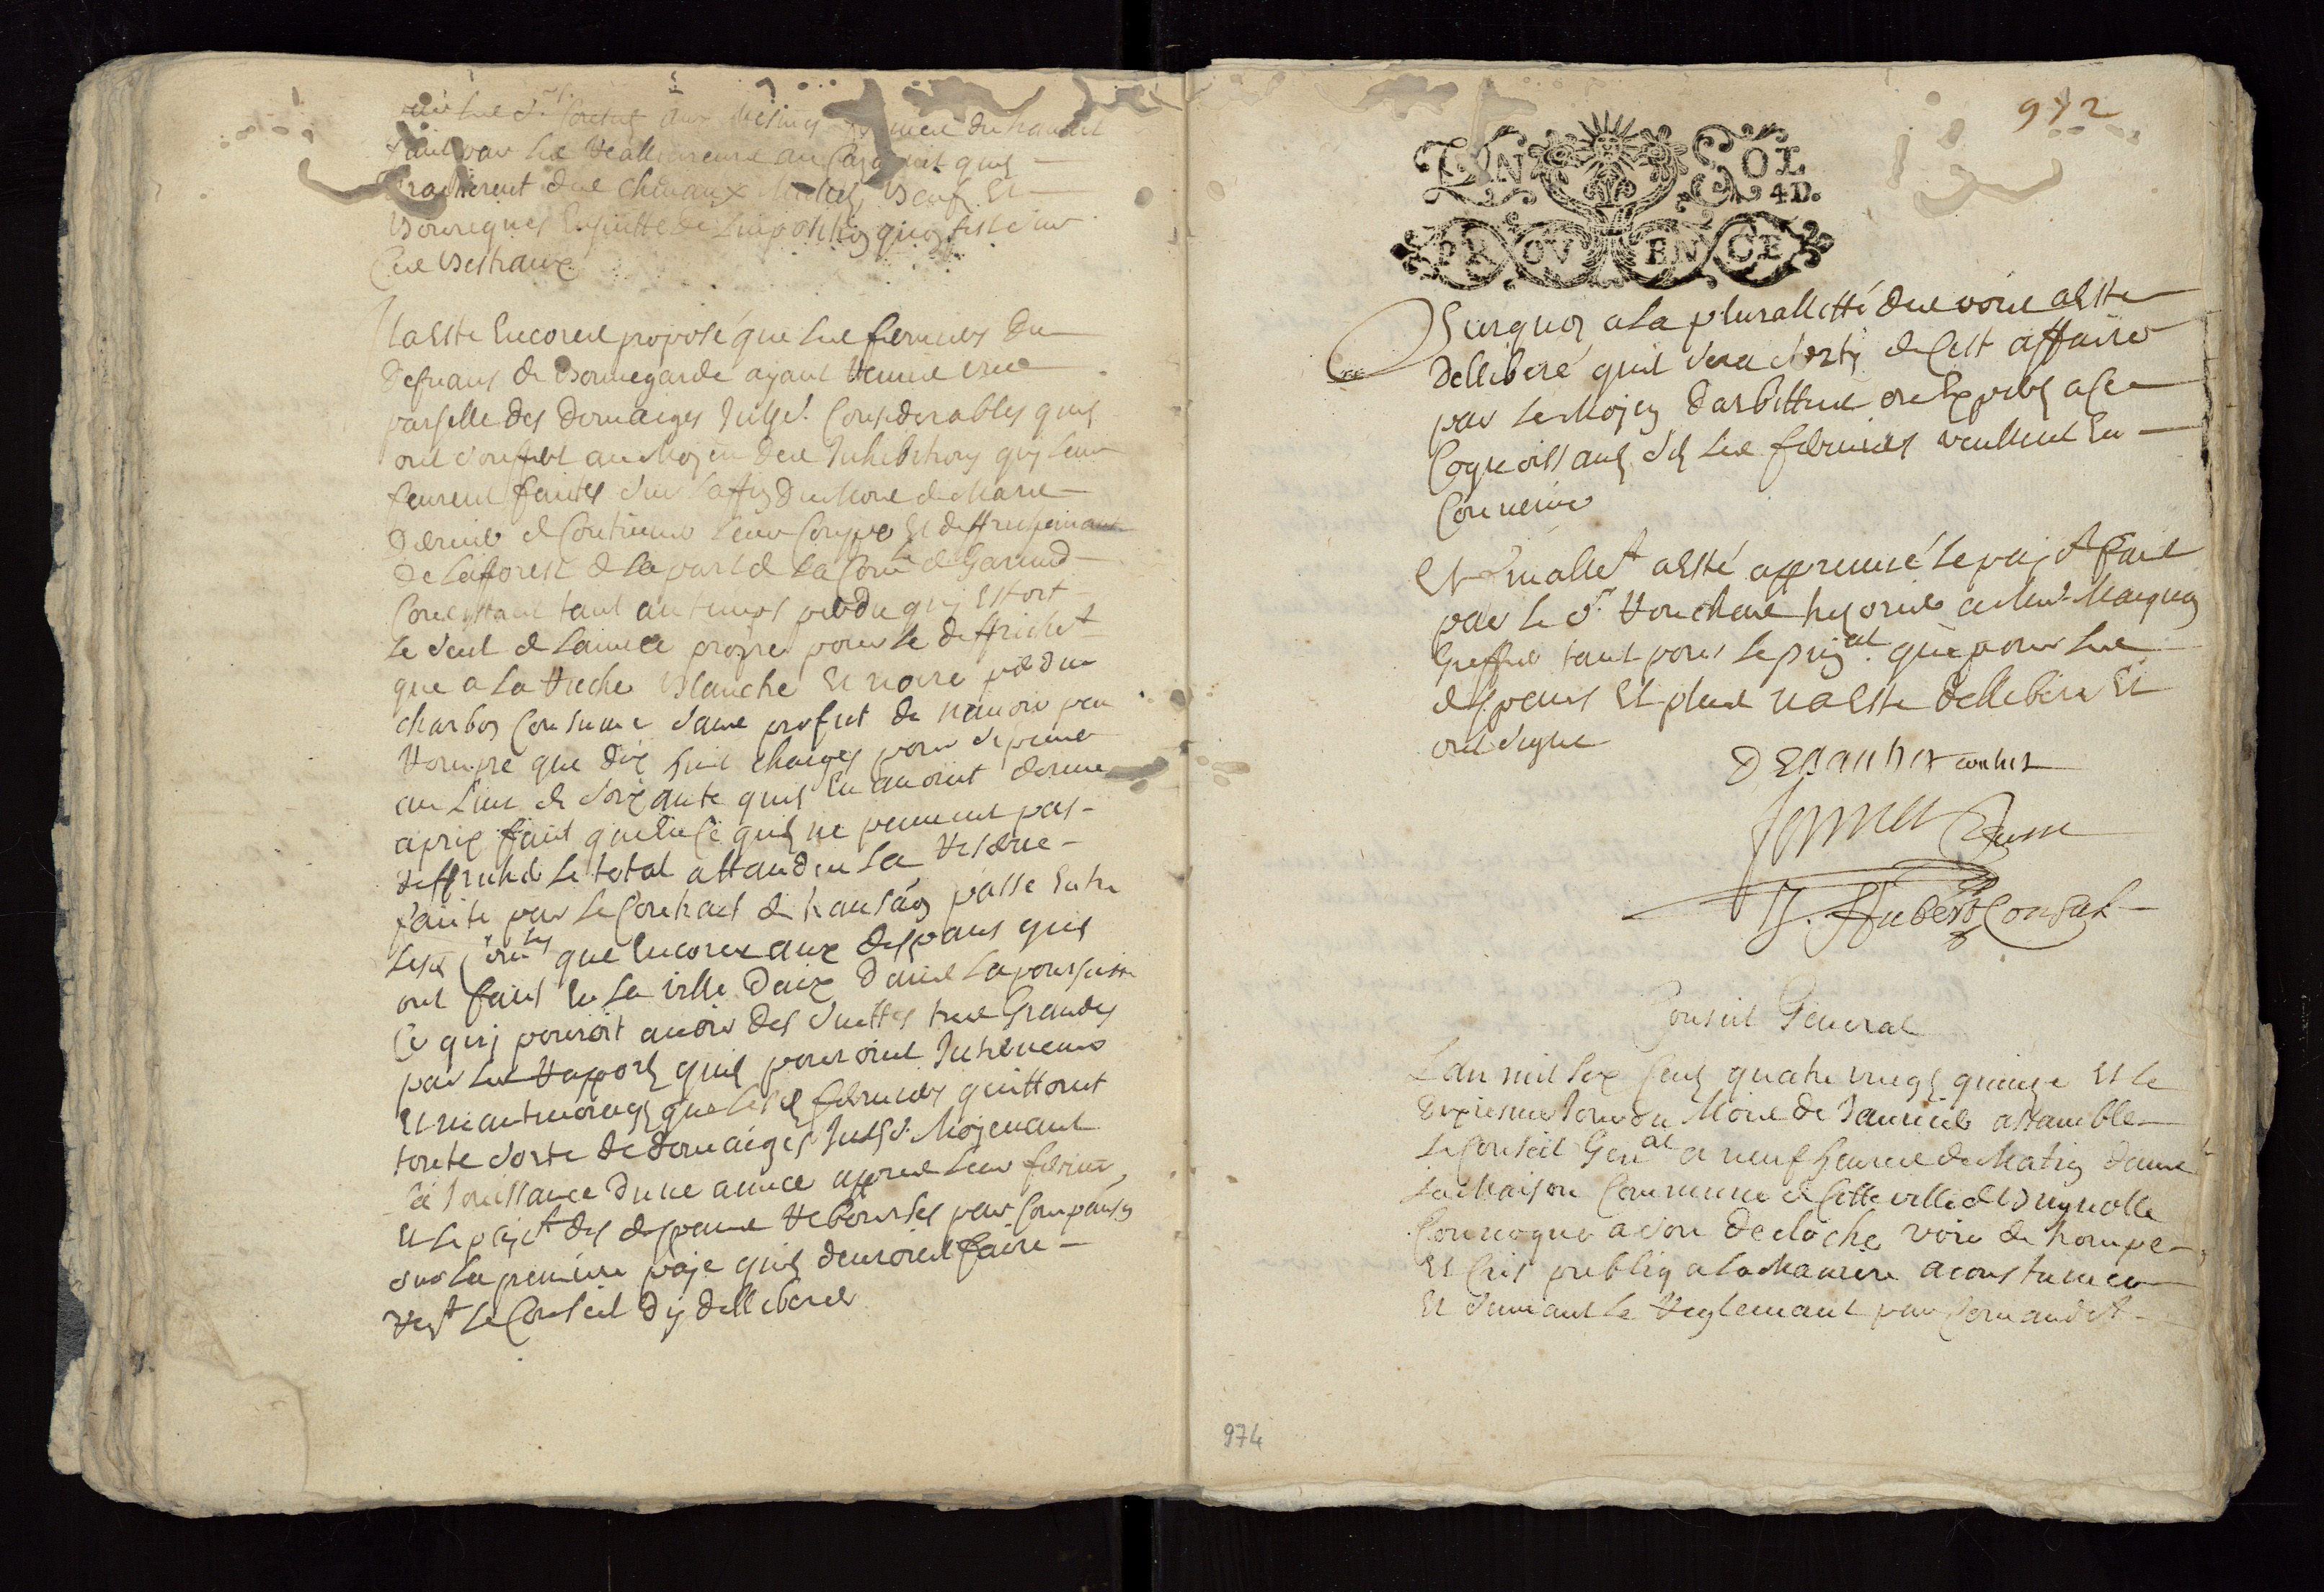 par les Srs Consuls aux mesmes du travail
par les au Cas quils
de chevaux mulets Beufs Et
Bourriques Ensuitte de Limposition quon fist sur
Ces Bestiaux
Il a Este Encores propose que Les fermiers du
defrans de Bonnegarde ayant Remis une
parselle des domaiges Intsts. Considerables quils
ont souffert au Moyen des Inhibitions quy leur
feurent faites sur La fin du Mois de Mars
dernier de Continuer leur Coupe Et deffrichemant
De La forest de La part de La Comté de Garund
Concistant tant au temps perdu quy Estoit
Le seul de Lannee propre pour Le deffrichet
que a La Ruche Blanche Et noire perdue
charbon Consumé sans profict de navoir peu
Rompre que dix huit charges pour semer
au Lieu de soixante quils En auroint donne
a prix fait quence quils ne peuvent pas
deffricher Le total attandeu La Reserve
faite par Le Contract de transaon passe Entre
Lesd Comtes que Encores aux despans quils
ont faits En La ville Daix Dans La poursuitte
Ce quy pouroit avoir des suittes tres Grandes
par Les Rapors quils pouroint Intervenir
Et neantmoings que Lesd fermiers quittoint
toute sorte de domaiges Intsts. Moyenant
La Jouissance dune annee apres leur ferme
Et Le payet des despans Rebourses par Compansaon
sur La premiere paje quils devroint faire
Reqt Le Conseil dy delliberer
972
UN SOL
4D.
PROVENCE
Surquoy a La plurallitté des voix a Este
Delliberé quil sera sorty de Cest affaire
par Le Moyen Darbittres ou Experts a Ce
Cognoissants sy Les fermiers veullent En
Convenir
Et finallet a Esté appreuvé Le payet fait
par Le Sr au Sr Maquan
Greffier tant pour Le prinal que pour Les
despans Et plus na Este dellibere Et
ont signe
Consul
J. Aubert Consul
Conseil General
Lan mil six Cens quatre vingts quinze Et Le
dixiesme Jour du Mois de Janvier assamble
Le Conseil Genal a neuf heures du Matin dans
La Maison Commune de Cette ville de Brignolle
Convoque a son de cloche voix de trompe
Et Cris publiq a La Maniere acoustumee
Et suivant Le Reglemant par Comandet
974